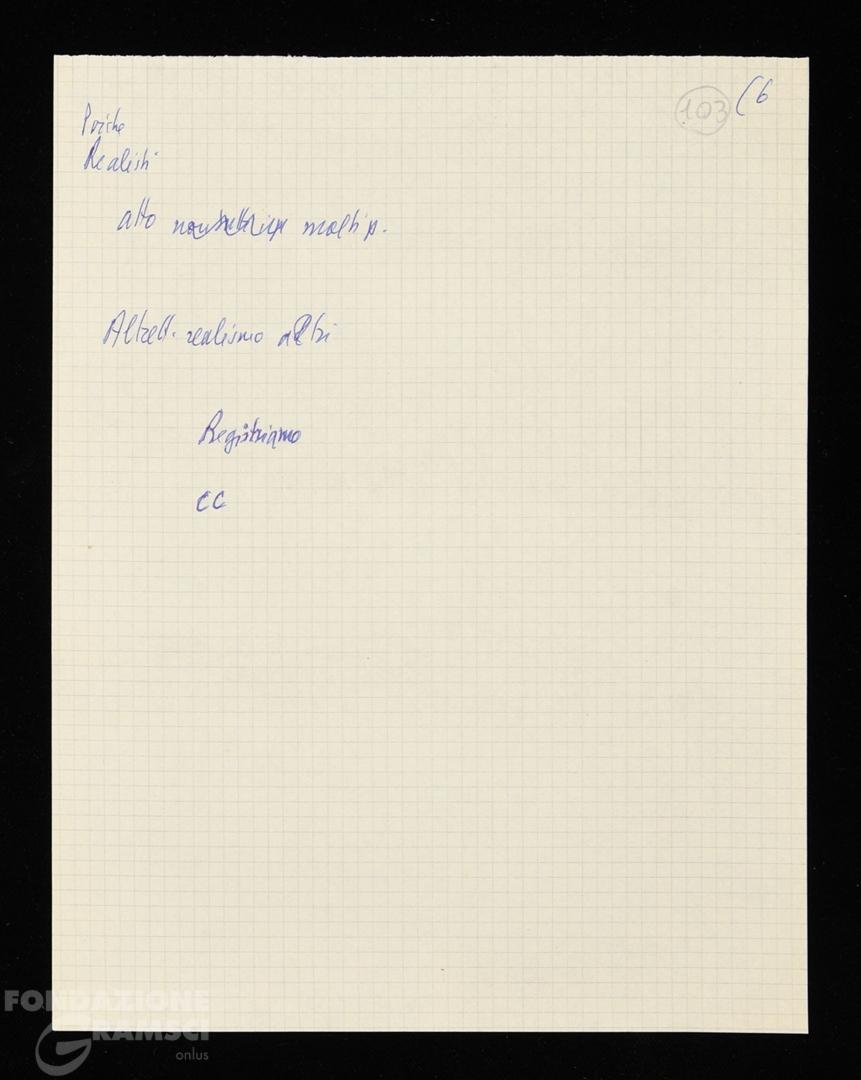 103 (6
Poiché
Realisti
atto molti p.
Altrett. realismo altri
Registriamo
CC
FONDAZIONE
GRAMSCI
onlus